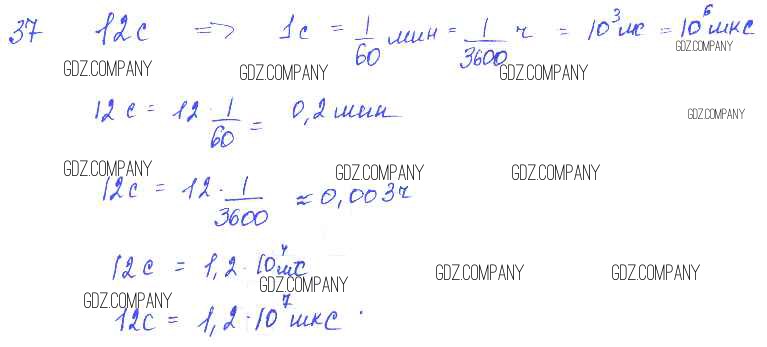 37 12с => 1с = 1/60 мин = 1/3600 ч = 10³ мс = 10⁶ мкс
GDZ.COMPANY GDZ.COMPANY GDZ.COMPANY GDZ.COMPANY
12с = 12 · 1/60 = 0,2 мин
GDZ.COMPANY
GDZ.COMPANY GDZ.COMPANY GDZ.COMPANY
12с = 12 · 1/3600 ≈ 0,003ч
12с = 1,2 · 10⁴ мс
GDZ.COMPANY GDZ.COMPANY GDZ.COMPANY GDZ.COMPANY
12с = 1,2 · 10⁷ мкс.